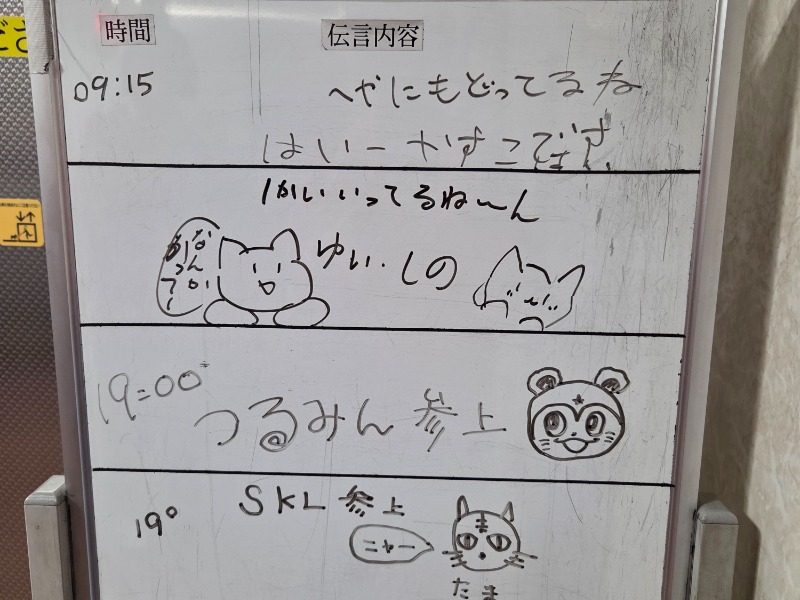 時間
伝言内容
09:15
へやにもどってるね
はいー かすこです。
1かいいってるね〜ん
ゆい・しの
19:00
つるみん 参上
19°
SKL 参上
ニャー
たま